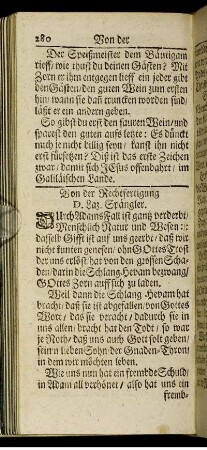 280 Von der
Der Speißmeister dem Bäutigam
rieff/ wie thust du deinen Gästen? Mit
Zorn er ihm entgegen lieff ein jeder gibt
den Gästen/ den guten Wein zum ersten
hin/ wann sie daß truncken worden sind/
läßt er ein andern geben.
So gibst du erst den sauren Wein/ und
sparest den guten auffs letzte: Es dünckt
mich je nicht billig seyn/ kanst ihn nicht
erst fürsetzen? Diß ist das erste Zeichen
zwar/ damit sich JEsus offenbahrt/ im
Galiläischen Lande.
Von der Rechtfertigung
D. Laz. Spängler.
DUrch Adams Fall ist gantz verderbt
Menschlich Natur und Wesen:
dasselb Gifft ist auf uns geerbt/ daß wir
nicht kunten genesen/ ohn GOttes Trost
der uns erlöst hat von den grossen Schaden/
darin die Schlang Hevam bezwang/
GOttes Zorn auff sich zu laden.
Weil dann die Schlang Hevam hat
bracht/ daß sie ist abgefallen/ von Gottes
Wort/ das sie veracht/ dadurch sie in
uns allen bracht hat den Todt/ so war
je Noth/ daß uns auch Gott solt geben/
sein'n lieben Sohn der Gnaden-Thron/
in dem wir möchten leben.
Wie uns nun hat ein frembde Schuld/
in Adam all verhönet/ also hat uns ein
fremb-